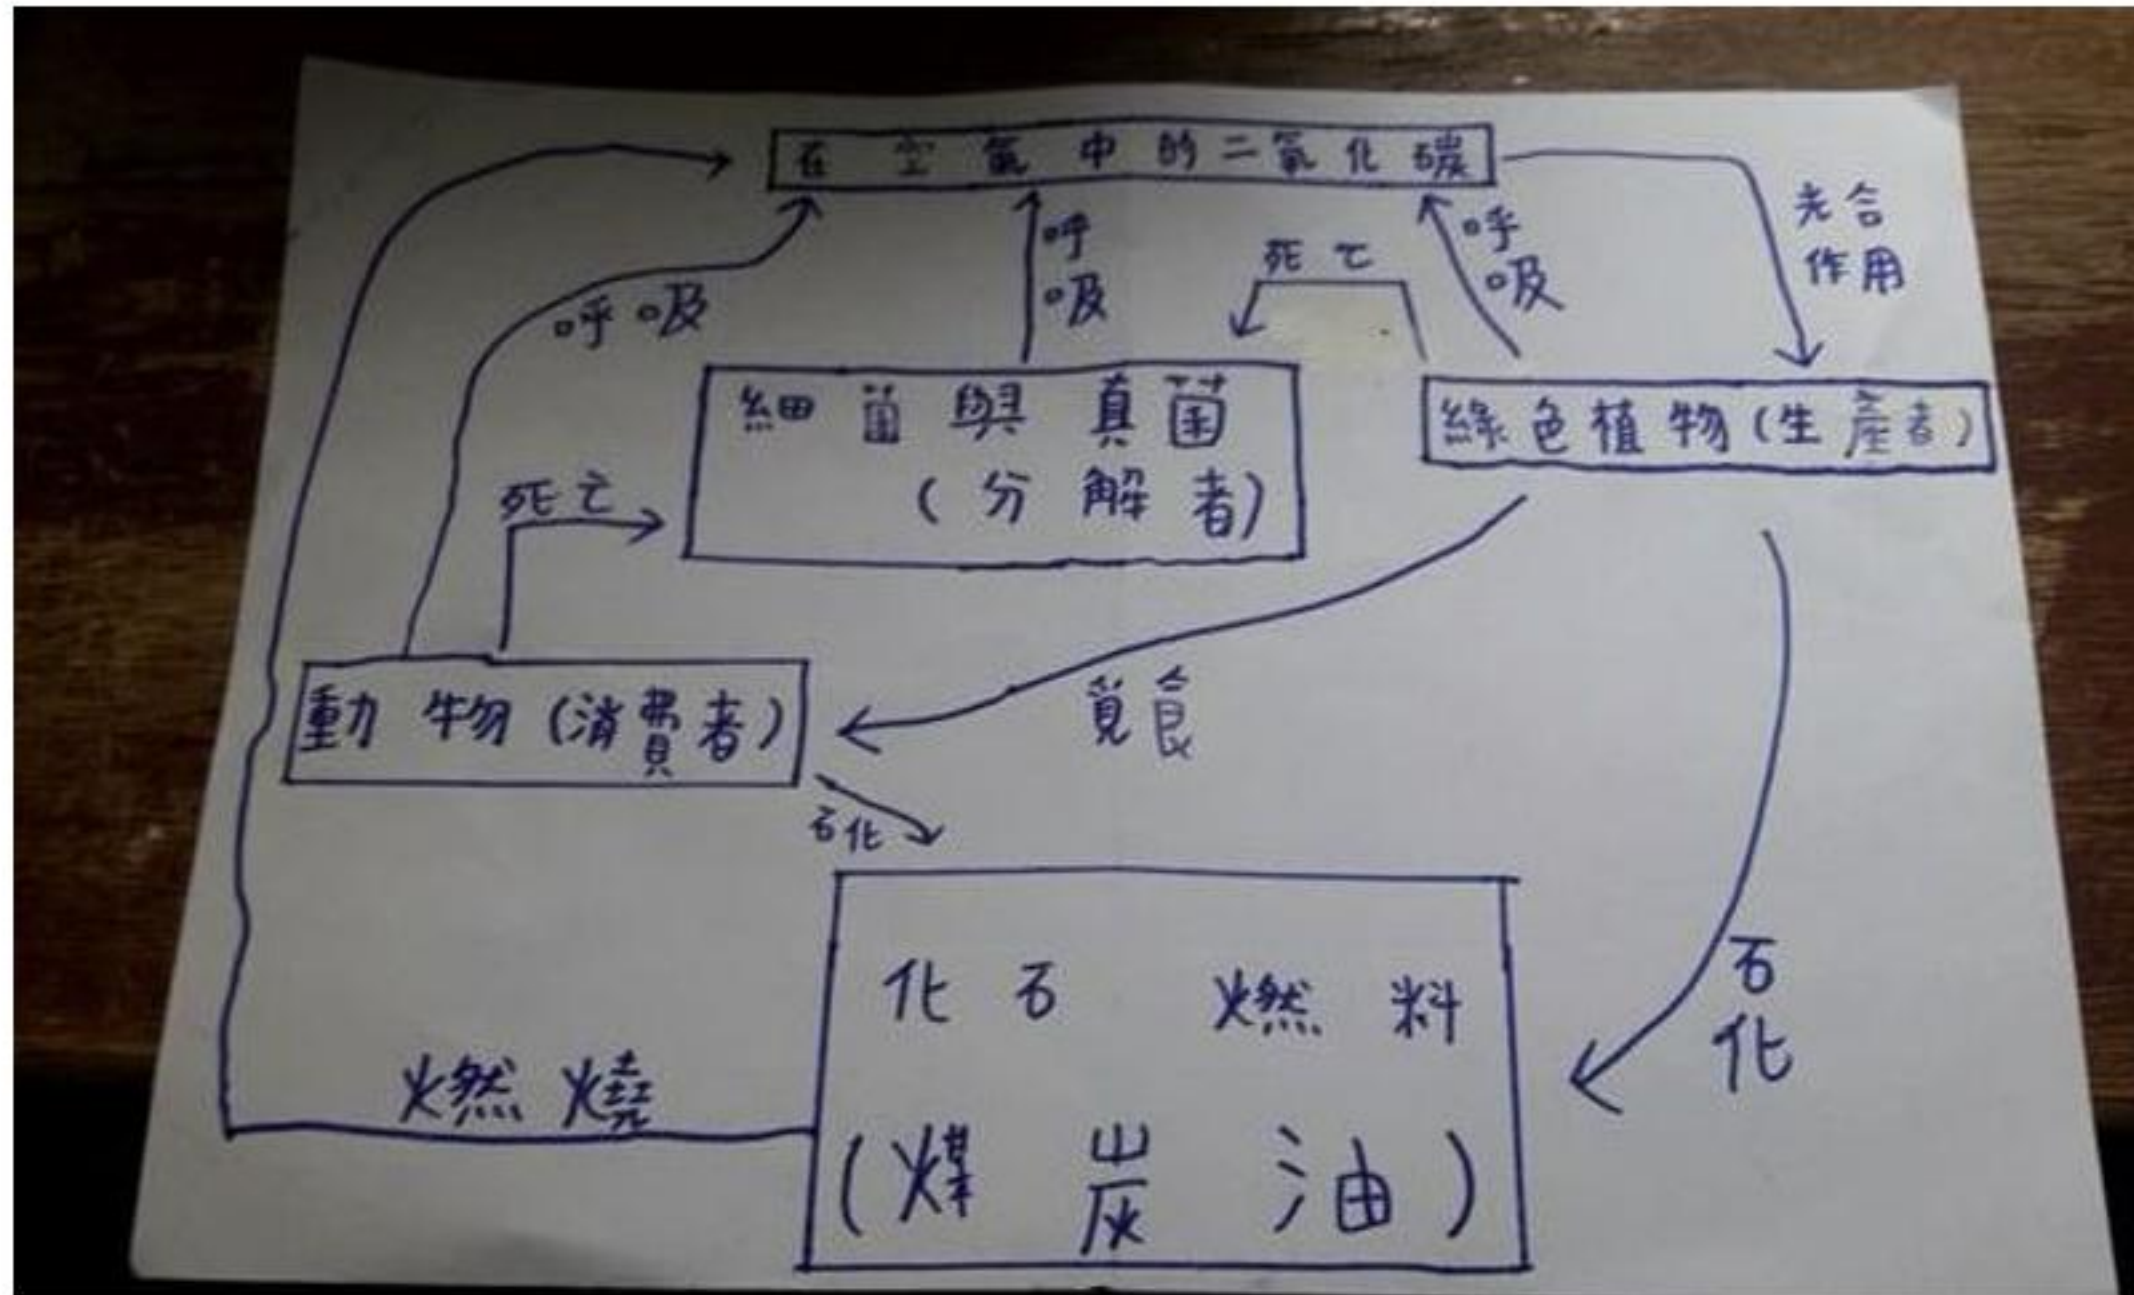 在空氣中的二氧化碳
光合
作用
呼
吸
死亡
呼
吸
呼吸
細菌與真菌
(分解者)
綠色植物(生產者)
死亡
動物(消費者)
覓食
石化
化石燃料
石
化
燃燒
(煤炭油)